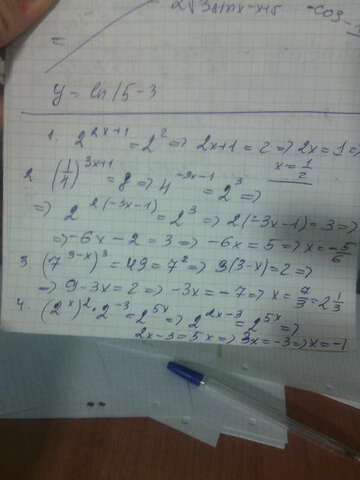 =
y = ln |5-3
1. 2^{2x+1} = 2^2 => 2x+1 = 2 => 2x = 1 =>
x = \frac{1}{2}
2 (\frac{1}{4})^{3x+1} = 8 => 4^{-3x-1} = 2^3 =>
=> 2^{2(-3x-1)} = 2^3 => 2(-3x-1) = 3 =>
=> -6x - 2 = 3 => -6x = 5 => x = \frac{-5}{6}
3 (7^{3-x})^3 = 49 = 7^2 => 3(3-x) = 2 =>
=> 9-3x = 2 => -3x = -7 => x = \frac{7}{3} = 2\frac{1}{3}
4. (2^x)^2 · 2^{-3} = 2^{5x} => 2^{2x-3} = 2^{5x} =>
2x-3 = 5x => 3x = -3 => x = -1